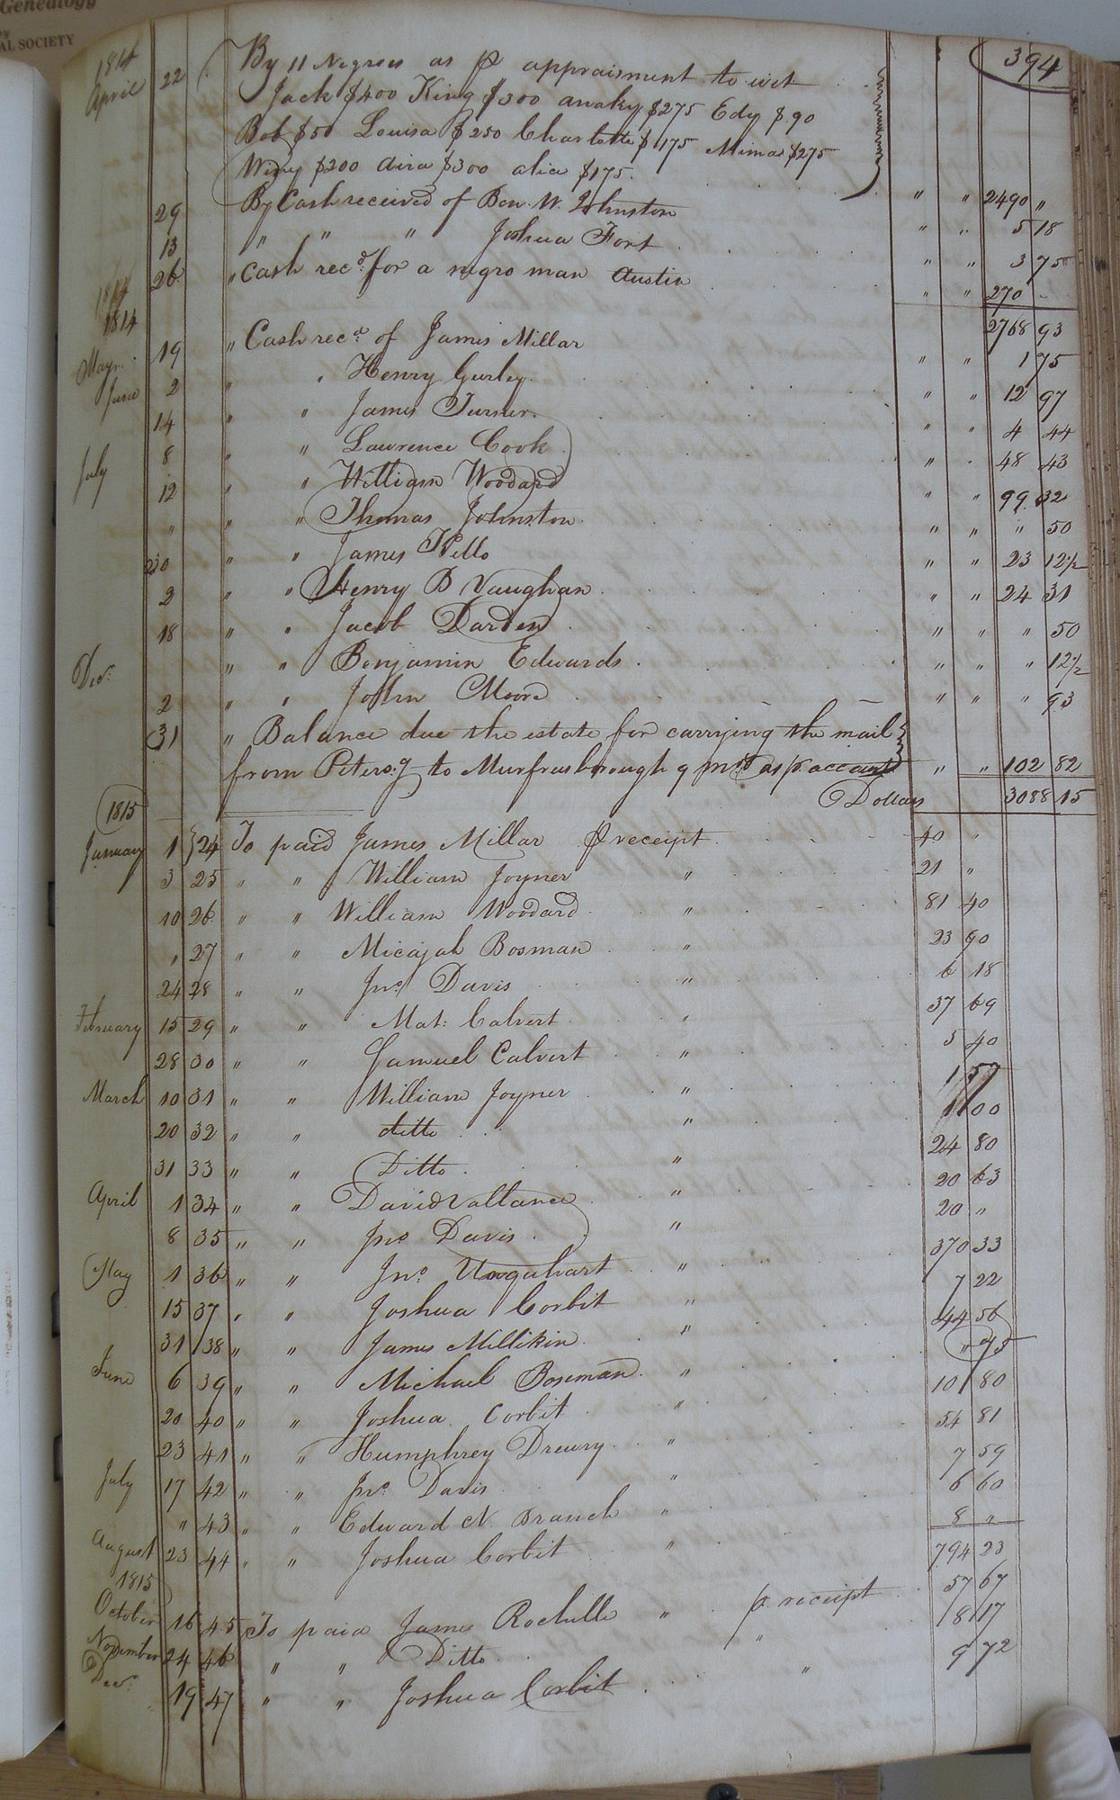 Genealogy
AL SOCIETY
394
1814
April 22 By 11 Negroes as p appraisment to wit
Jack $400 King $300 anaky $275 Edy $90
Bob $50 Louisa $250 Charlotte $175 Mima $275
Winy $200 dira $300 alia $175. " " 2490 "
29 By Cash received of Ben. W. Johnston " " 5 18
13 " " " Joshua Fort " " 3 75
26 " Cash recd. for a negro man Austin " " 270 -
1814
1814 2768 93
May 19 " Cash recd of James Millar " " 1 75
June 2 " " Henry Gurley " " 12 97
14 " " James Turner " " 4 44
July 8 " " Lawrence Cook " " 48 43
12 " " William Woodard " " 99 32
" " " Thomas Johnston " " " 50
30 " " James Wells " " 23 12½
2 " " Henry B Vaughan " " 24 31
18 " " Jacob Darden " " " 50
Decr. " " Benjamin Edwards " " " 12½
2 " " John Moore " " " 93
31 " Balance due the estate for carrying the mail
from Petersg to Murfreesborough as p account " " 102 82
Dollars 3088 15
1815
January 1 24 To paid James Millar p receipt 40 "
3 25 " " William Joyner " 21 "
10 26 " " William Woodard " 81 40
" 27 " " Micajah Bosman " 23 90
24 28 " " Jno. Davis " 6 18
February 15 29 " " Mat: Calvert " 37 69
28 30 " " Samuel Calvert " 5 40
March 10 31 " " William Joyner " 1 57
20 32 " " ditto " 1 00
31 33 " " Ditto " 24 80
April 1 34 " " David Vallance " 20 63
8 35 " " Jno. Davis " 20 "
May 1 36 " " Jno. Urquhart " 370 33
15 37 " " Joshua Corbit " 7 22
31 38 " " James Millikin " 44 56
June 6 39 " " Michael Boseman " " 95
20 40 " " Joshua Corbit " 10 80
23 41 " " Humphrey Drewry " 54 81
July 17 42 " " Jno. Davis " 7 59
" 43 " " Edward N. Branch " 6 60
August 23 44 " " Joshua Corbit " 8 "
1815 794 23
October 16 45 To paid James Rochelle " p receipt 57 67
November 24 46 " " Ditto " 8 17
Decr. 19 47 " " Joshua Corbit " 9 72